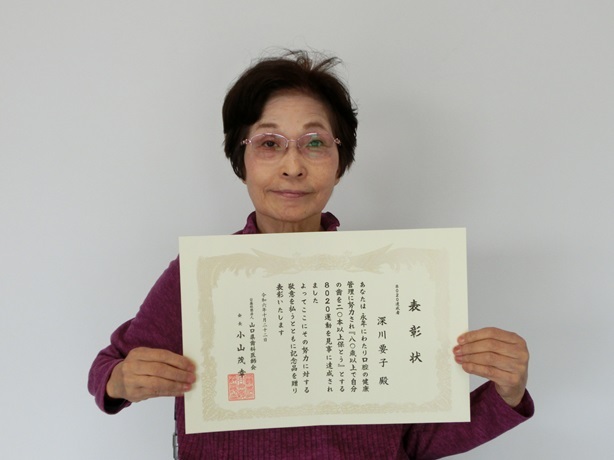 表彰状
８０２０達成者
深川要子 殿
あなたは永年にわたり口腔の健康
管理に努力され『八〇歳以上で自分
の歯を二〇本以上保とう』とする
８０２０運動を見事に達成され
ました
よってここにその努力に対する
敬意を払うとともに記念品を贈り
表彰いたします
令和六年十月二十二日
山口県歯科医師会
会長 小山茂幸